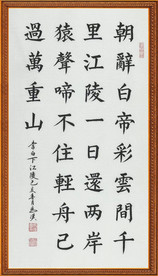 朝辭白帝彩雲間千
里江陵一日還兩岸
猿聲啼不住輕舟已
過萬重山
李白下江陵